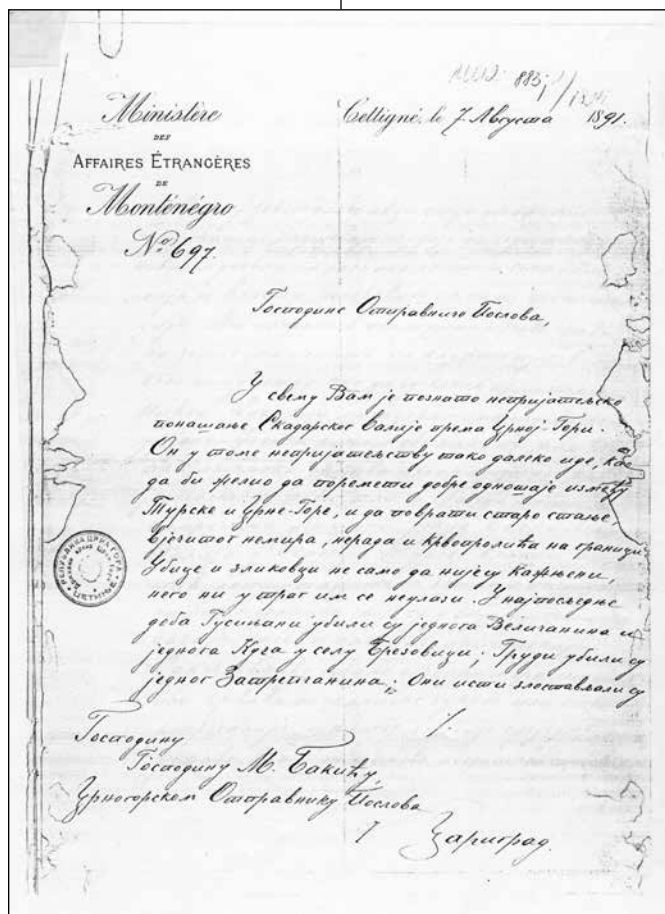 883
Ministère
DES
AFFAIRES ÉTRANGÈRES
DE
Monténégro
No 697.
Cettigné, le 7. Августа 1891.
Господине Отправниче Послова,
У свему Вам је познато непријатељско
понашање Скадарског валије према Црној-Гори.
Он у томе непријатељству тако далеко иде, као
да би желио да поремети добре одношаје између
Турске и Црне-Горе, и да поврати старо стање
вјечитог немира, нереда и крвопролића на граници.
Убице и зликовци не само да нијесу кажњени,
него ни у траг им се неулази. У најпосљедње
доба Гусињани убили су једнога Величанина и
једнога Куча у селу Брезовици; Груди убили су
једног Затрепчанина; Они исти злостављали су
РЕПУБЛИКА ЦРНА ГОРА
ЦЕТИЊЕ
Господину
Господину М. Бакићу,
Црногорском Отправнику Послова
Цариград.